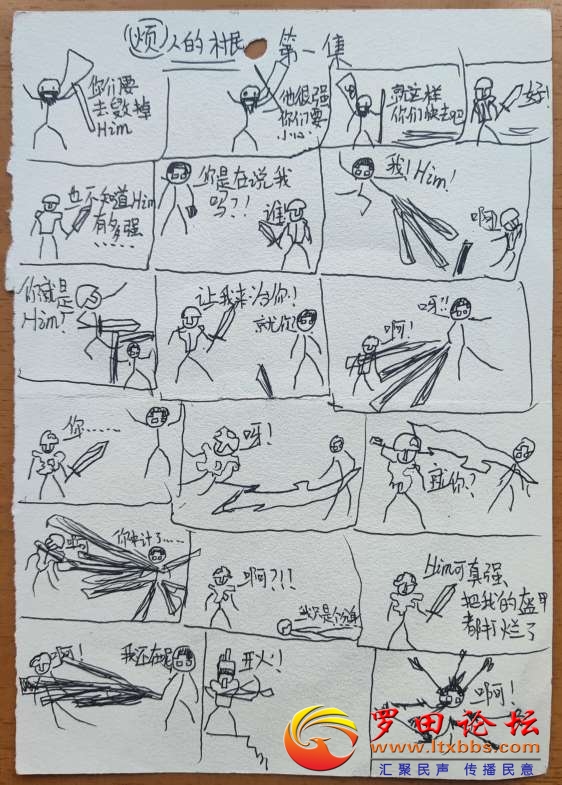 烦人的村民 第一集
你们要
去毁掉
Him
他很强
你们要
小心
就这样
你们快去吧
好!
也不知道Him
有多强
......
你是在说我
吗?!
谁!
我!Him!
啊!
你就是
Him!
让我来治你!
就你?
啊!
呀!!
你......
呀!
就你?
啊
你中计了......
啊?!!
我只是个分身
Him可真强
把我的盔甲
都打烂了
啊!
我还在呢
开火!
啊!
罗田论坛
www.ltxbbs.com
汇聚民声 传播民意